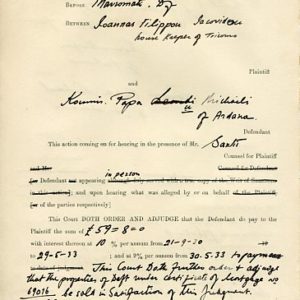 BEFORE Mavromati. DJ
BETWEEN Ioannas Filippou Iacovidou
house keeper of Tricomo
Plaintiff
and
Koumis. Papa Michaeli
of Ardana.
Defendant
This action coming on for hearing in the presence of Mr. Santi
Counsel for Plaintiff
and Mr. Counsel for Defendant
in person
(or Defendant not appearing although duly served with a true copy of the Writ of
in this action) and upon hearing what was alleged by or on behalf of the Plaintiff,
(or of the parties respectively)
This Court DOTH ORDER AND ADJUDGE that the Defendant do pay to the
Plaintiff the sum of £59=8=0
with interest thereon at 10 % per annum from 21-9-30 to
29-5-33 and at 9% per annum from 30.5.33 to payment
This Court Doth further order & adjudge
that the properties of Deft under certificate of Mortgage No
69016 be sold in Satisfaction of this Judgment.